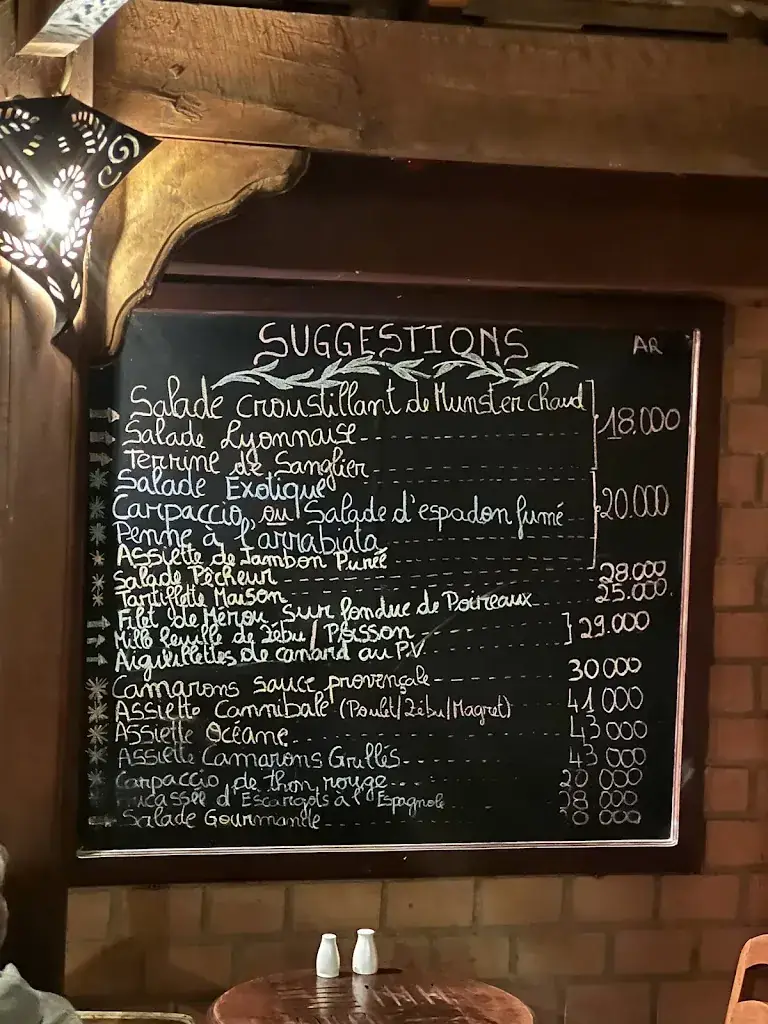 SUGGESTIONS AR
Salade croustillant de Munster chaud
Salade Lyonnaise 18.000
Terrine de Sanglier
Salade Exotique
Carpaccio ou Salade d'espadon fumé 20.000
Penne à l'arrabiata
Assiette de Jambon Purée
Salade Pêcheur 28.000
Tartiflette Maison 25.000
Filet de Mérou sur fondue de Poireaux
Mille feuille de Zébu/Poisson 29.000
Aiguillettes de canard au P.V.
Camarons sauce provençale 30 000
Assiette Cannibale (Poulet/Zébu/Magret) 41 000
Assiette Océane 43 000
Assiette Camarons Grillés 43 000
Carpaccio de thon rouge 20 000
d'Escargots à l'Espagnole 28 000
Salade Gourmande